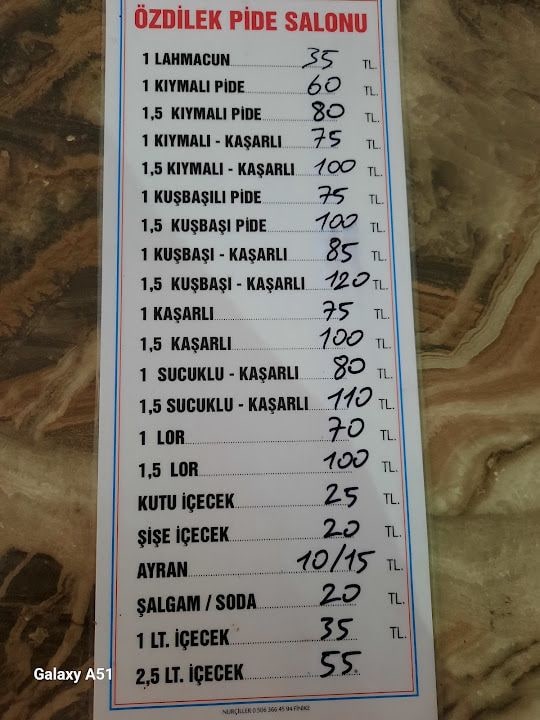 ÖZDİLEK PİDE SALONU
1 LAHMACUN 35 TL.
1 KIYMALI PİDE 60 TL.
1,5 KIYMALI PİDE 80 TL.
1 KIYMALI - KAŞARLI 75 TL.
1,5 KIYMALI - KAŞARLI 100 TL.
1 KUŞBAŞILI PİDE 75 TL.
1,5 KUŞBAŞI PİDE 100 TL.
1 KUŞBAŞI - KAŞARLI 85 TL.
1,5 KUŞBAŞI - KAŞARLI 120 TL.
1 KAŞARLI 75 TL.
1,5 KAŞARLI 100 TL.
1 SUCUKLU - KAŞARLI 80 TL.
1,5 SUCUKLU - KAŞARLI 110 TL.
1 LOR 70 TL.
1,5 LOR 100 TL.
KUTU İÇECEK 25 TL.
ŞİŞE İÇECEK 20 TL.
AYRAN 10/15 TL.
ŞALGAM / SODA 20 TL.
1 LT. İÇECEK 35 TL.
2,5 LT. İÇECEK 55
NURÇİLLER 0 506 366 45 94 FİNİKE
Galaxy A51